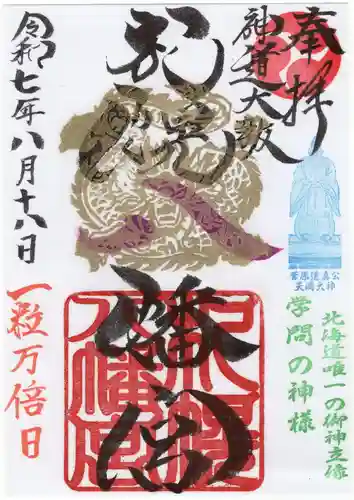 奉拝
神道大教
幡宮
八幡宮
菅原道真公
天満大神
北海道唯一の御神立像
学問の神様
令和七年八月十八日
一粒万倍日